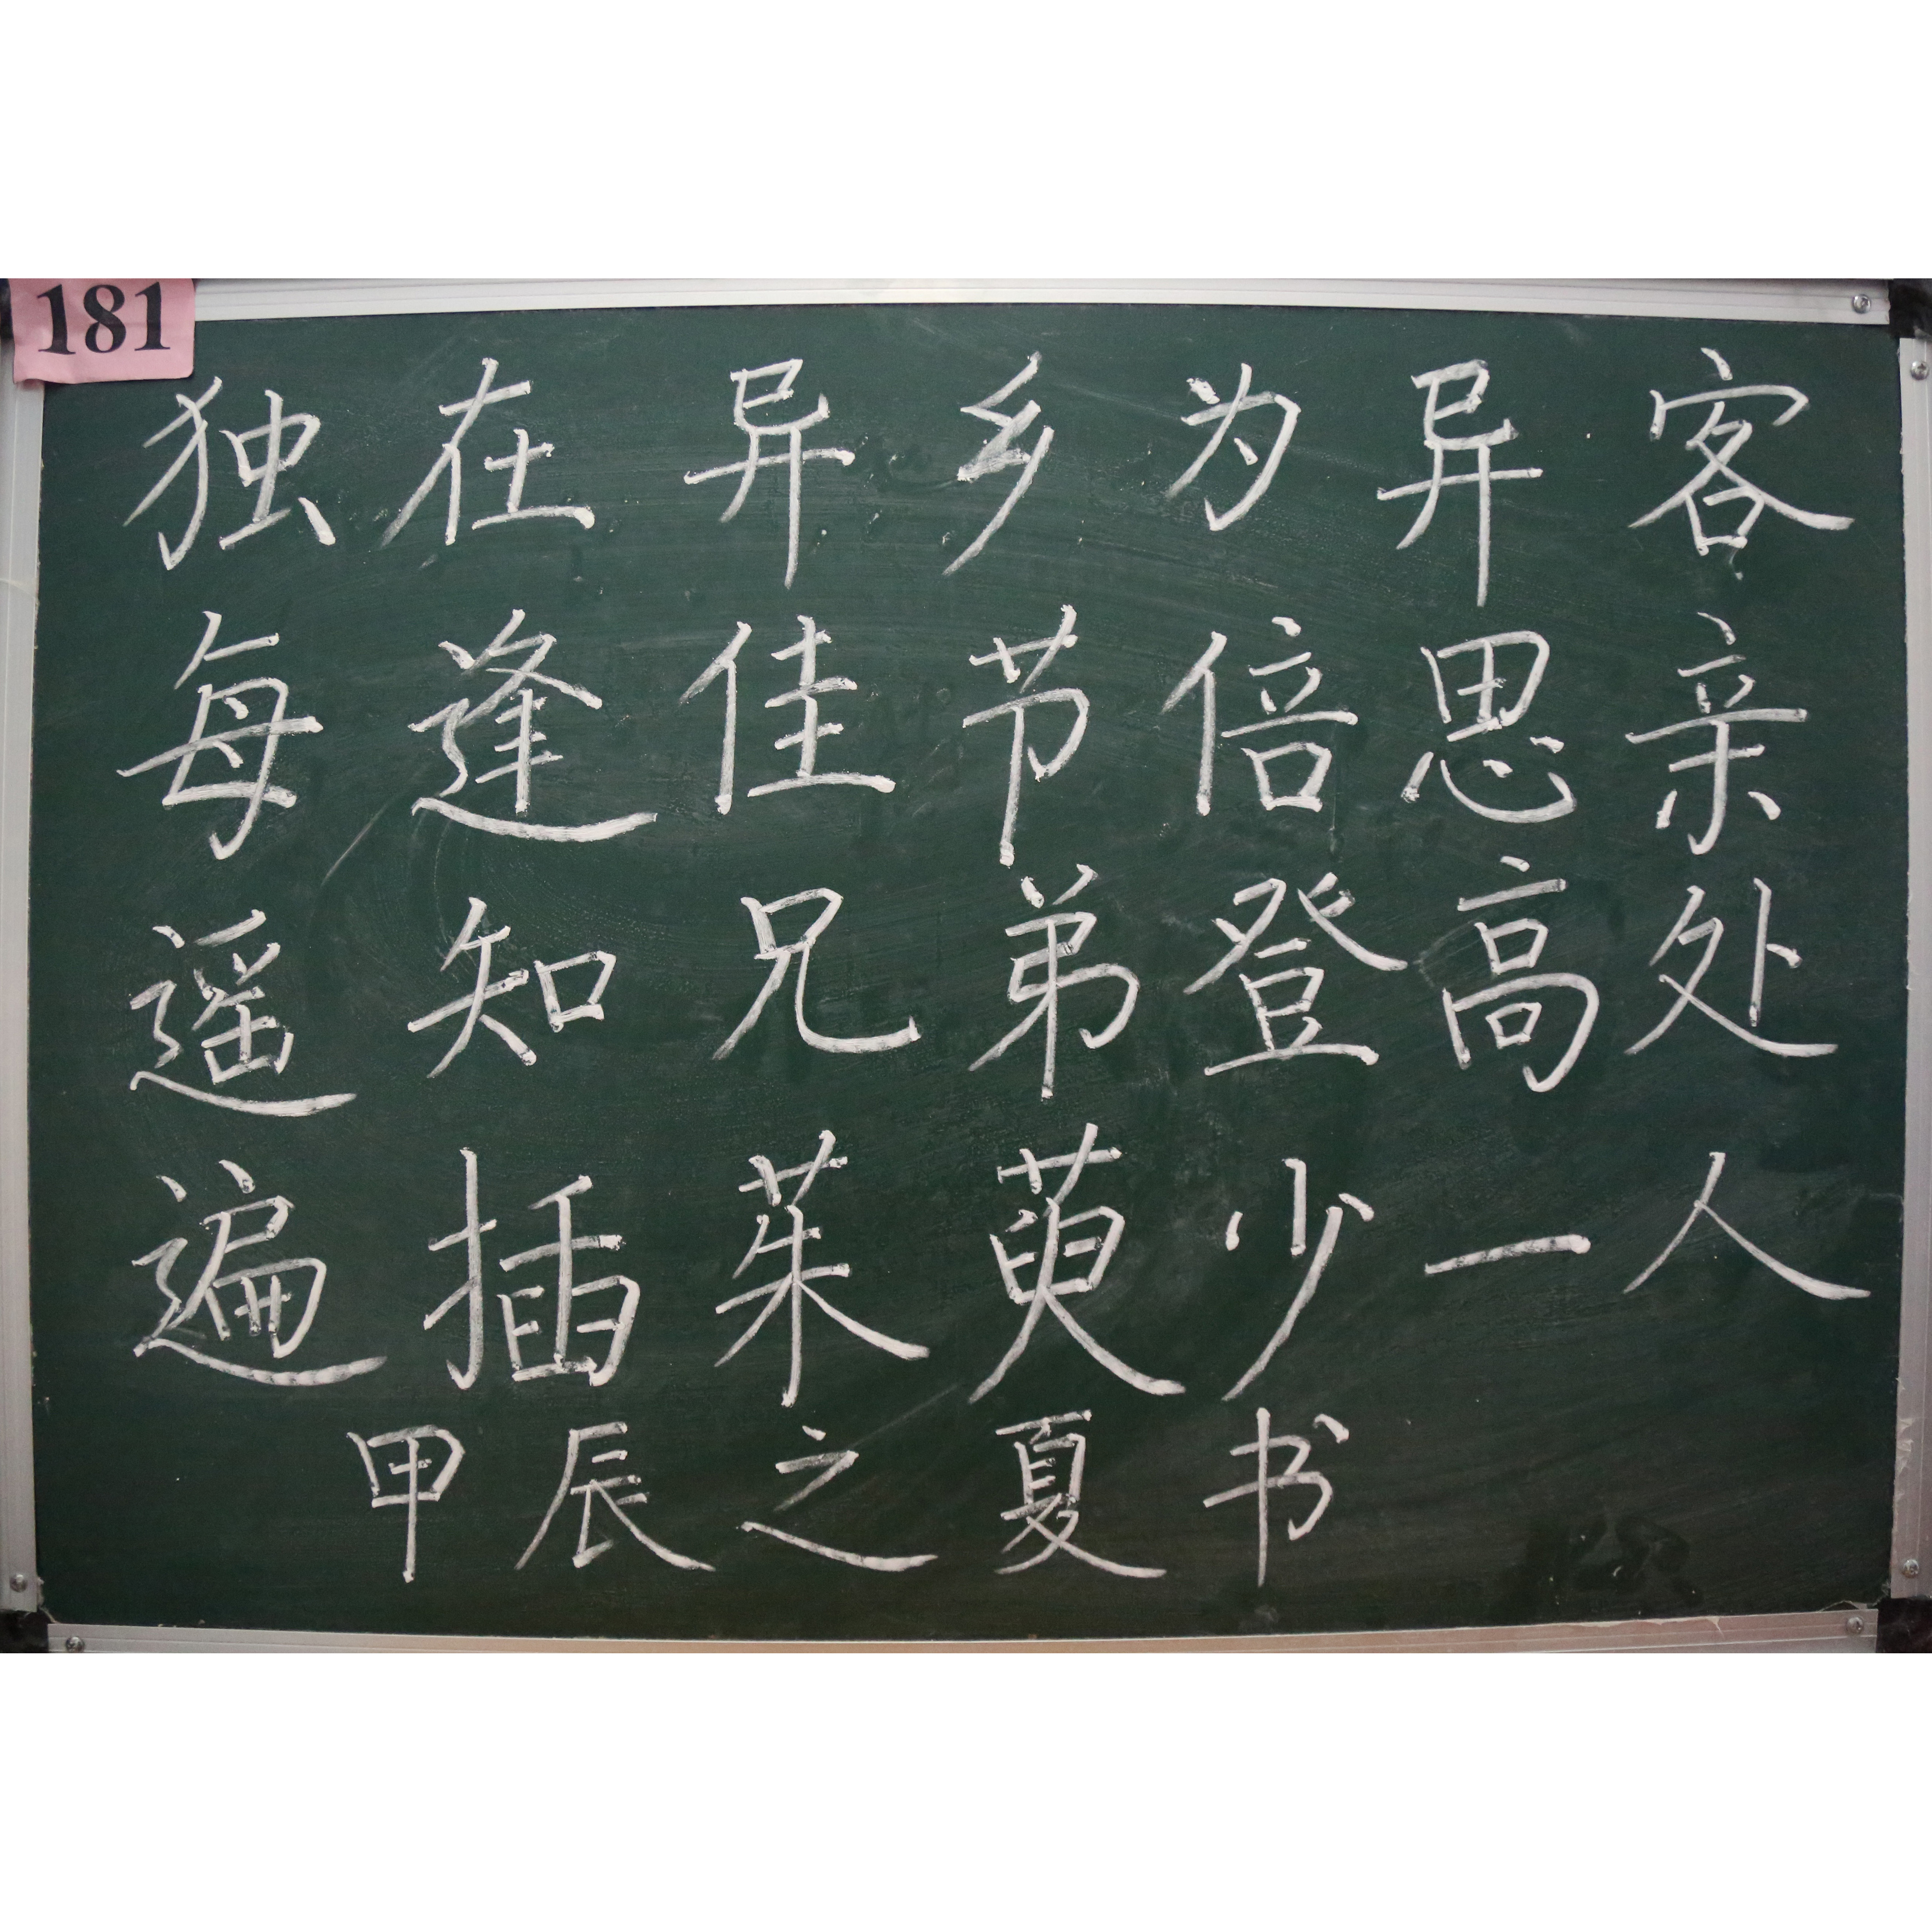 181
独在异乡为异客
每逢佳节倍思亲
遥知兄弟登高处
遍插茱萸少一人
甲辰之夏书